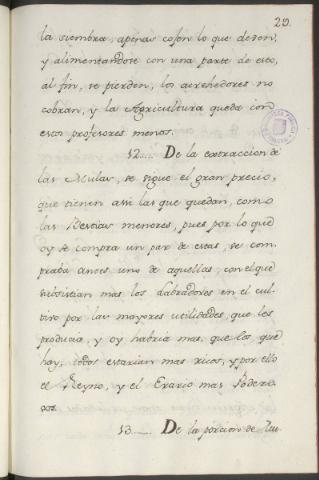 29.
la siembra, apenas cojen lo que deven,
y alimentandose con una parte de esto,
al fin, se pierden, los acrehedores no
cobran, y la Agricultura queda con
estos profesores menos.
12.... De la extraccion de
las Mulas, se sigue el gran precio,
que tienen asi las que quedan, como
las Bestias menores, pues por lo que
oy se compra un par de estas, se com
praba antes uno de aquellas, con el que
subsistian mas los Labradores en el cul
tivo por las mayores utilidades, que les
producia, y oy habria mas, que los que
hay, todos estarian mas ricos, y por ello
el Reyno, y el Erario mas Podero
sos.
13.... De la porcion de